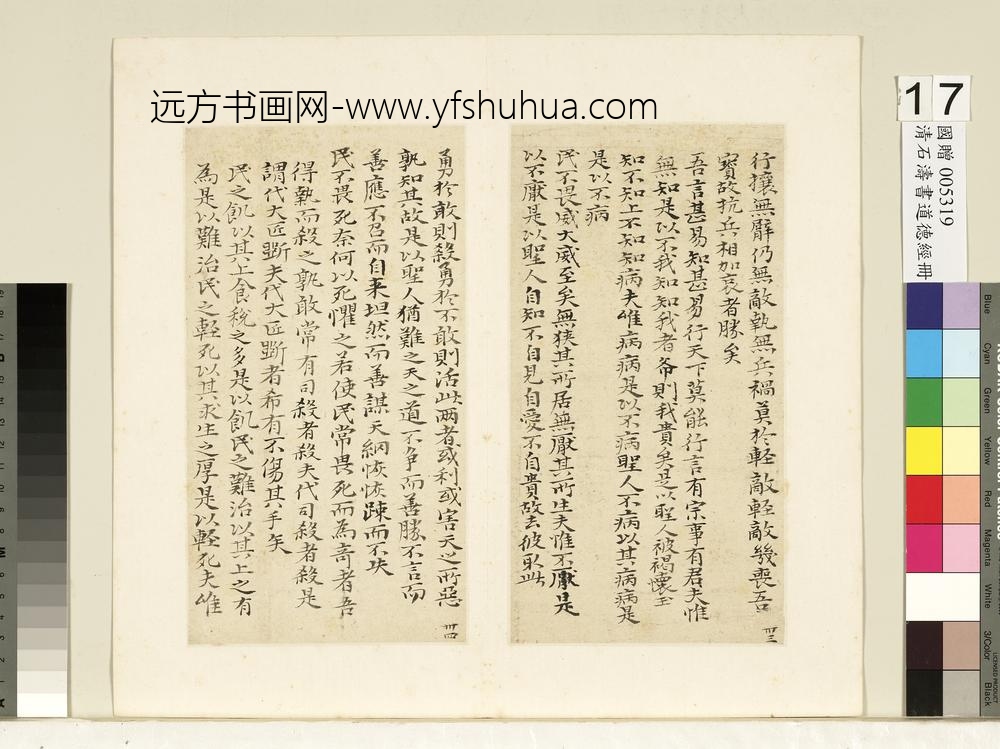 远方书画网-www.yfshuhua.com
17
國贈 005319
清石濤書道德經冊
行攘無臂仍無敵執無兵禍莫於輕敵輕敵幾喪吾
寶故抗兵相加哀者勝矣
吾言甚易知甚易行天下莫能行言有宗事有君夫惟
無知是以不我知知我者希則我貴矣是以聖人被褐懷玉
知不知上不知知病夫唯病病是以不病聖人不病以其病病是
是以不病
民不畏威大威至矣無狹其所居無厭其所生夫惟不厭是
以不厭是以聖人自知不自見自愛不自貴故去彼取此
卅三
勇於敢則殺勇於不敢則活此两者或利或害天之所惡
孰知其故是以聖人猶難之天之道不争而善勝不言而
善應不召而自来坦然而善謀天網恢恢疎而不失
民不畏死奈何以死懼之若使民常畏死而為竒者吾
得執而殺之孰敢常有司殺者殺夫代司殺者殺是
謂代大匠斲夫代大匠斲者希有不傷其手矣
民之飢以其上食稅之多是以飢民之難治以其上之有
為是以難治民之輕死以其求生之厚是以輕死夫唯
卅四
Blue
Cyan
Green
Yellow
Red
Magenta
White
3/Color
Black